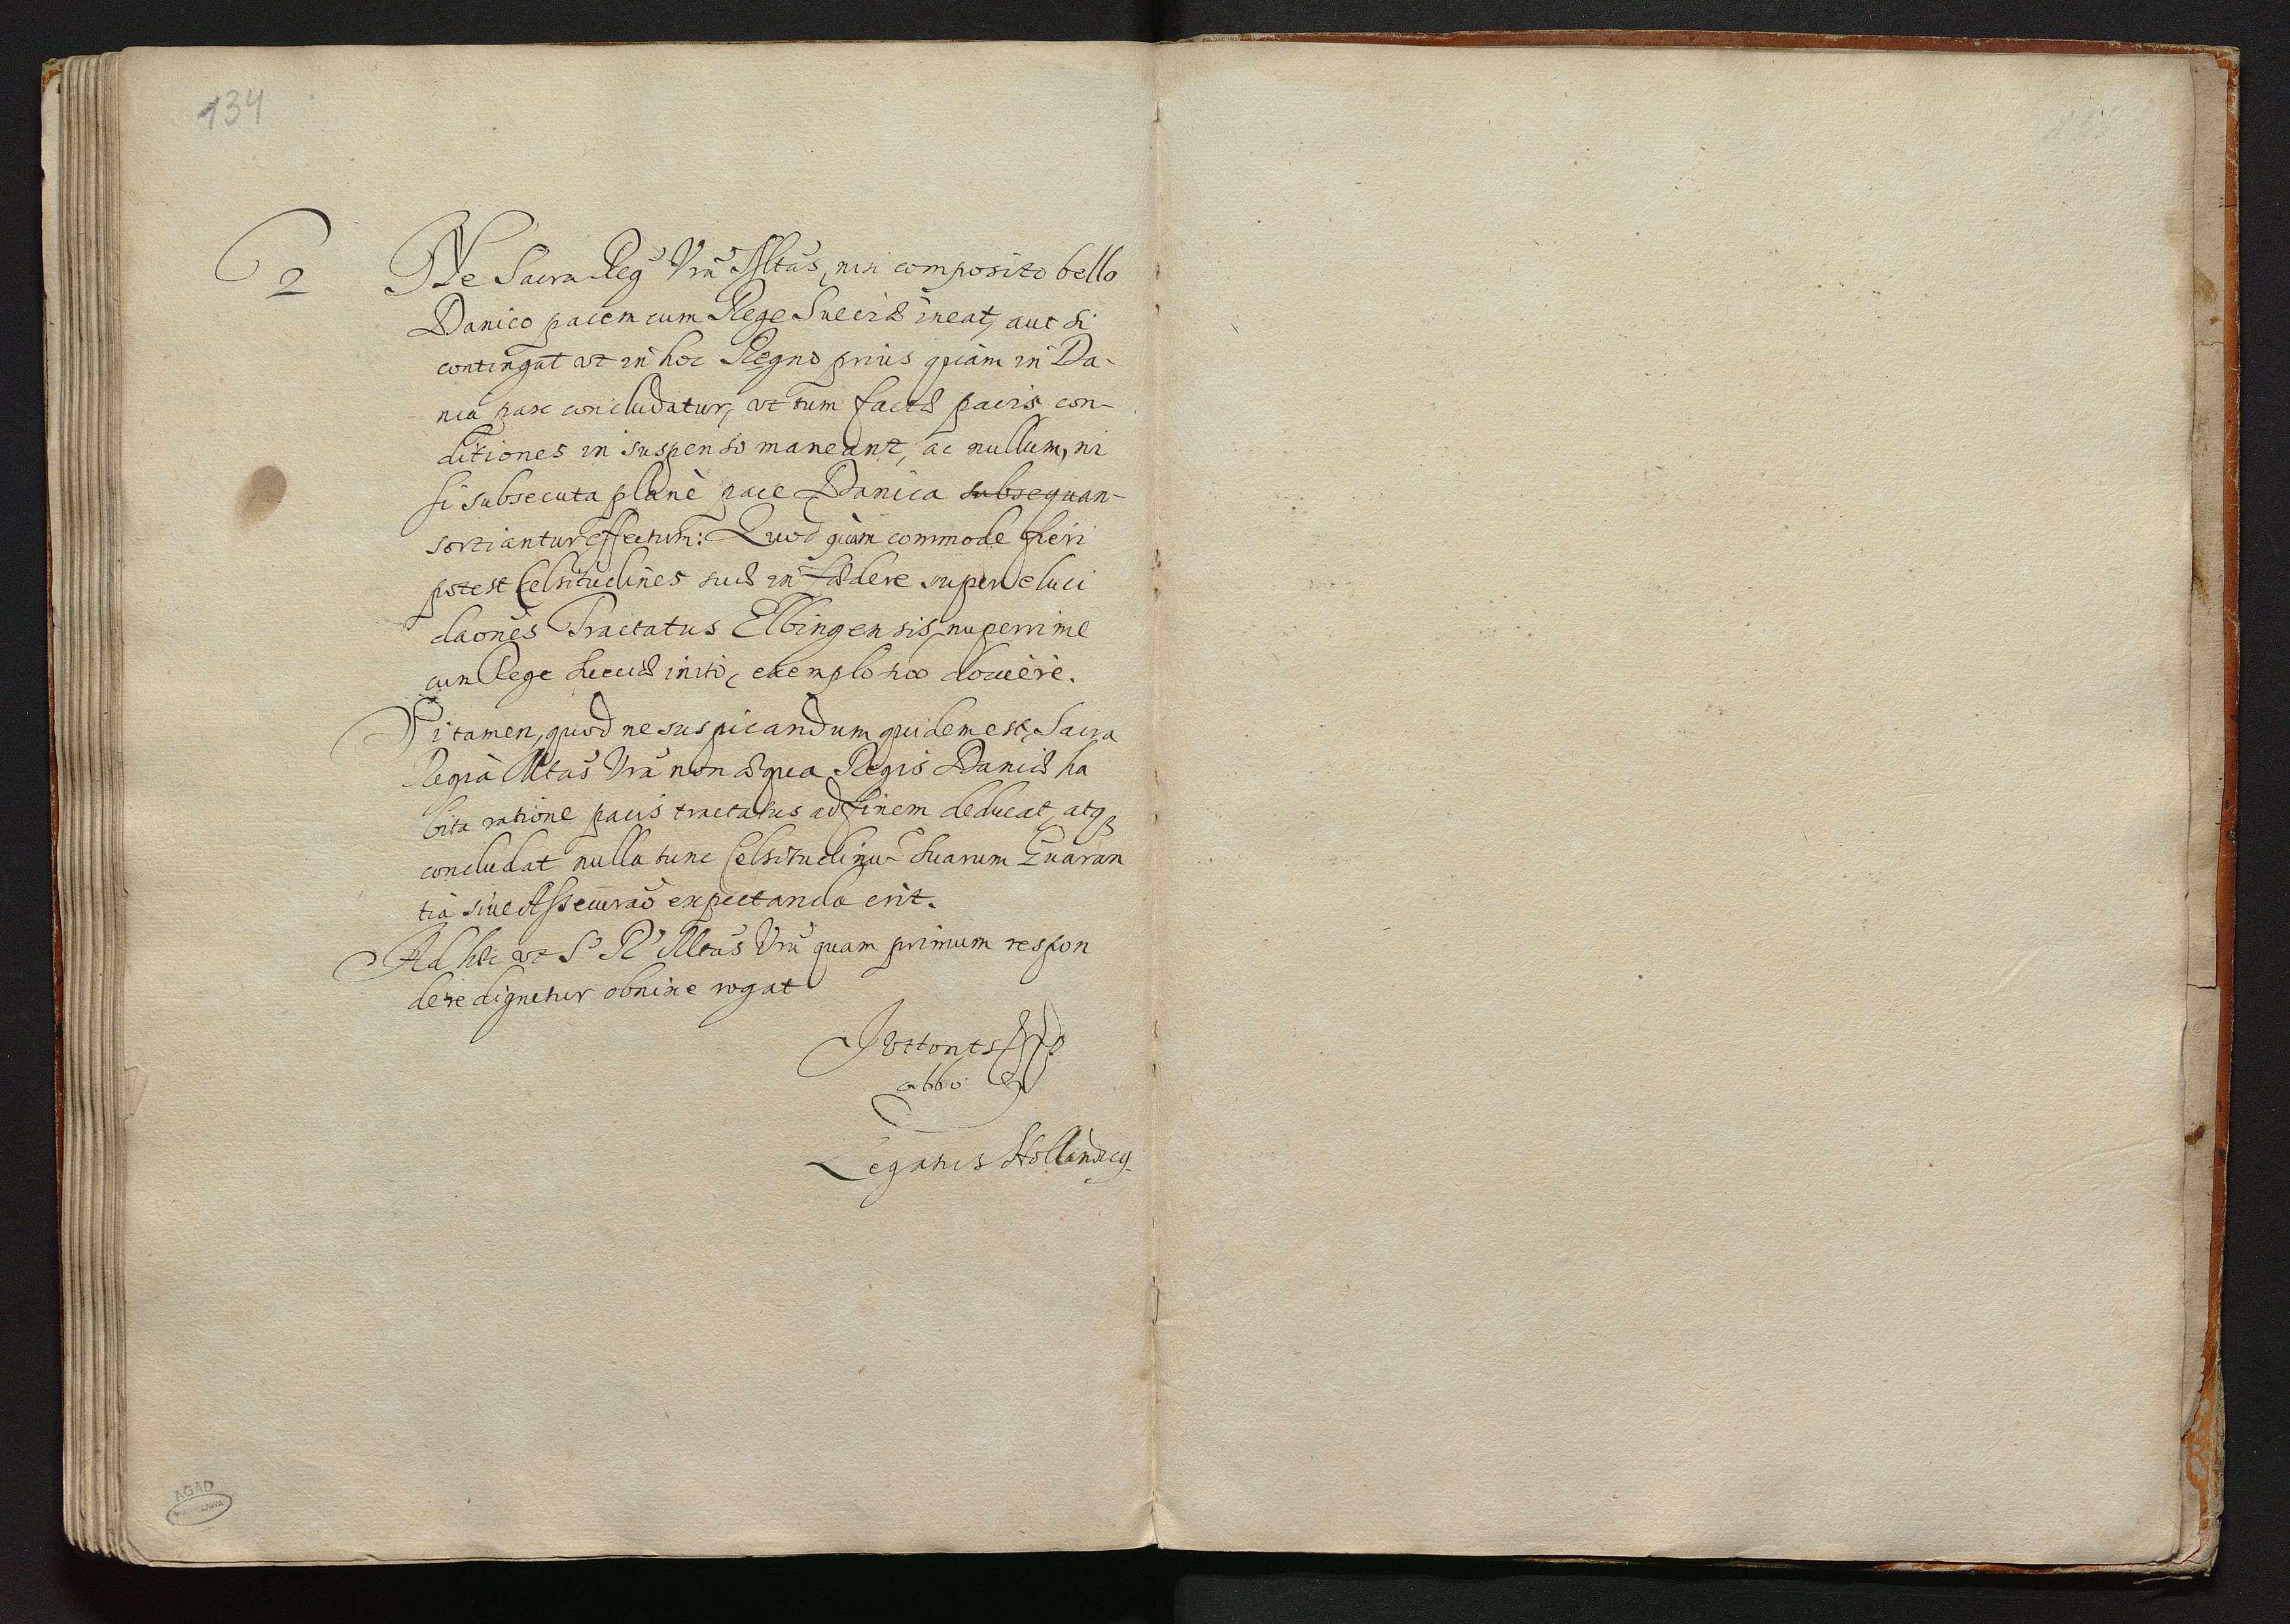 134
2 Ne Sacra Reg Vra Mltas, nisi composito bello
Danico pacem cum Rege Sueciæ ineat, aut si
contingat vt in hoc Regno prius quàm in Da-
nia pax concludatur, vt tum factæ pacis con-
ditiones in suspenso maneant, ac nullum, ni
si subsecuta planè pace Danica subsequan-
sortiantur effectum: Quod quàm commode fieri
potest Celsitudines suæ in fædere super eluci
daones Tractatus Elbingensis, nuperrime
cum Rege Sueciæ inito, exemplo suo docuère.
Si tamen, quod ne suspicandum quidem est, Sacra
Regia Mtas Vra non æqua Regis Daniæ ha
bita ratione pacis tractatus ad finem deducat, atq
concludat nulla tunc Celsitudinu Suarum Guaran
tia siue Assecurao expectanda erit.
Ad hæc vt S R Mtas Vra quam primum respon
dere dignetur obnixe rogat
abbo
Legatus Hollandicg
AGAD
WARSZAWA